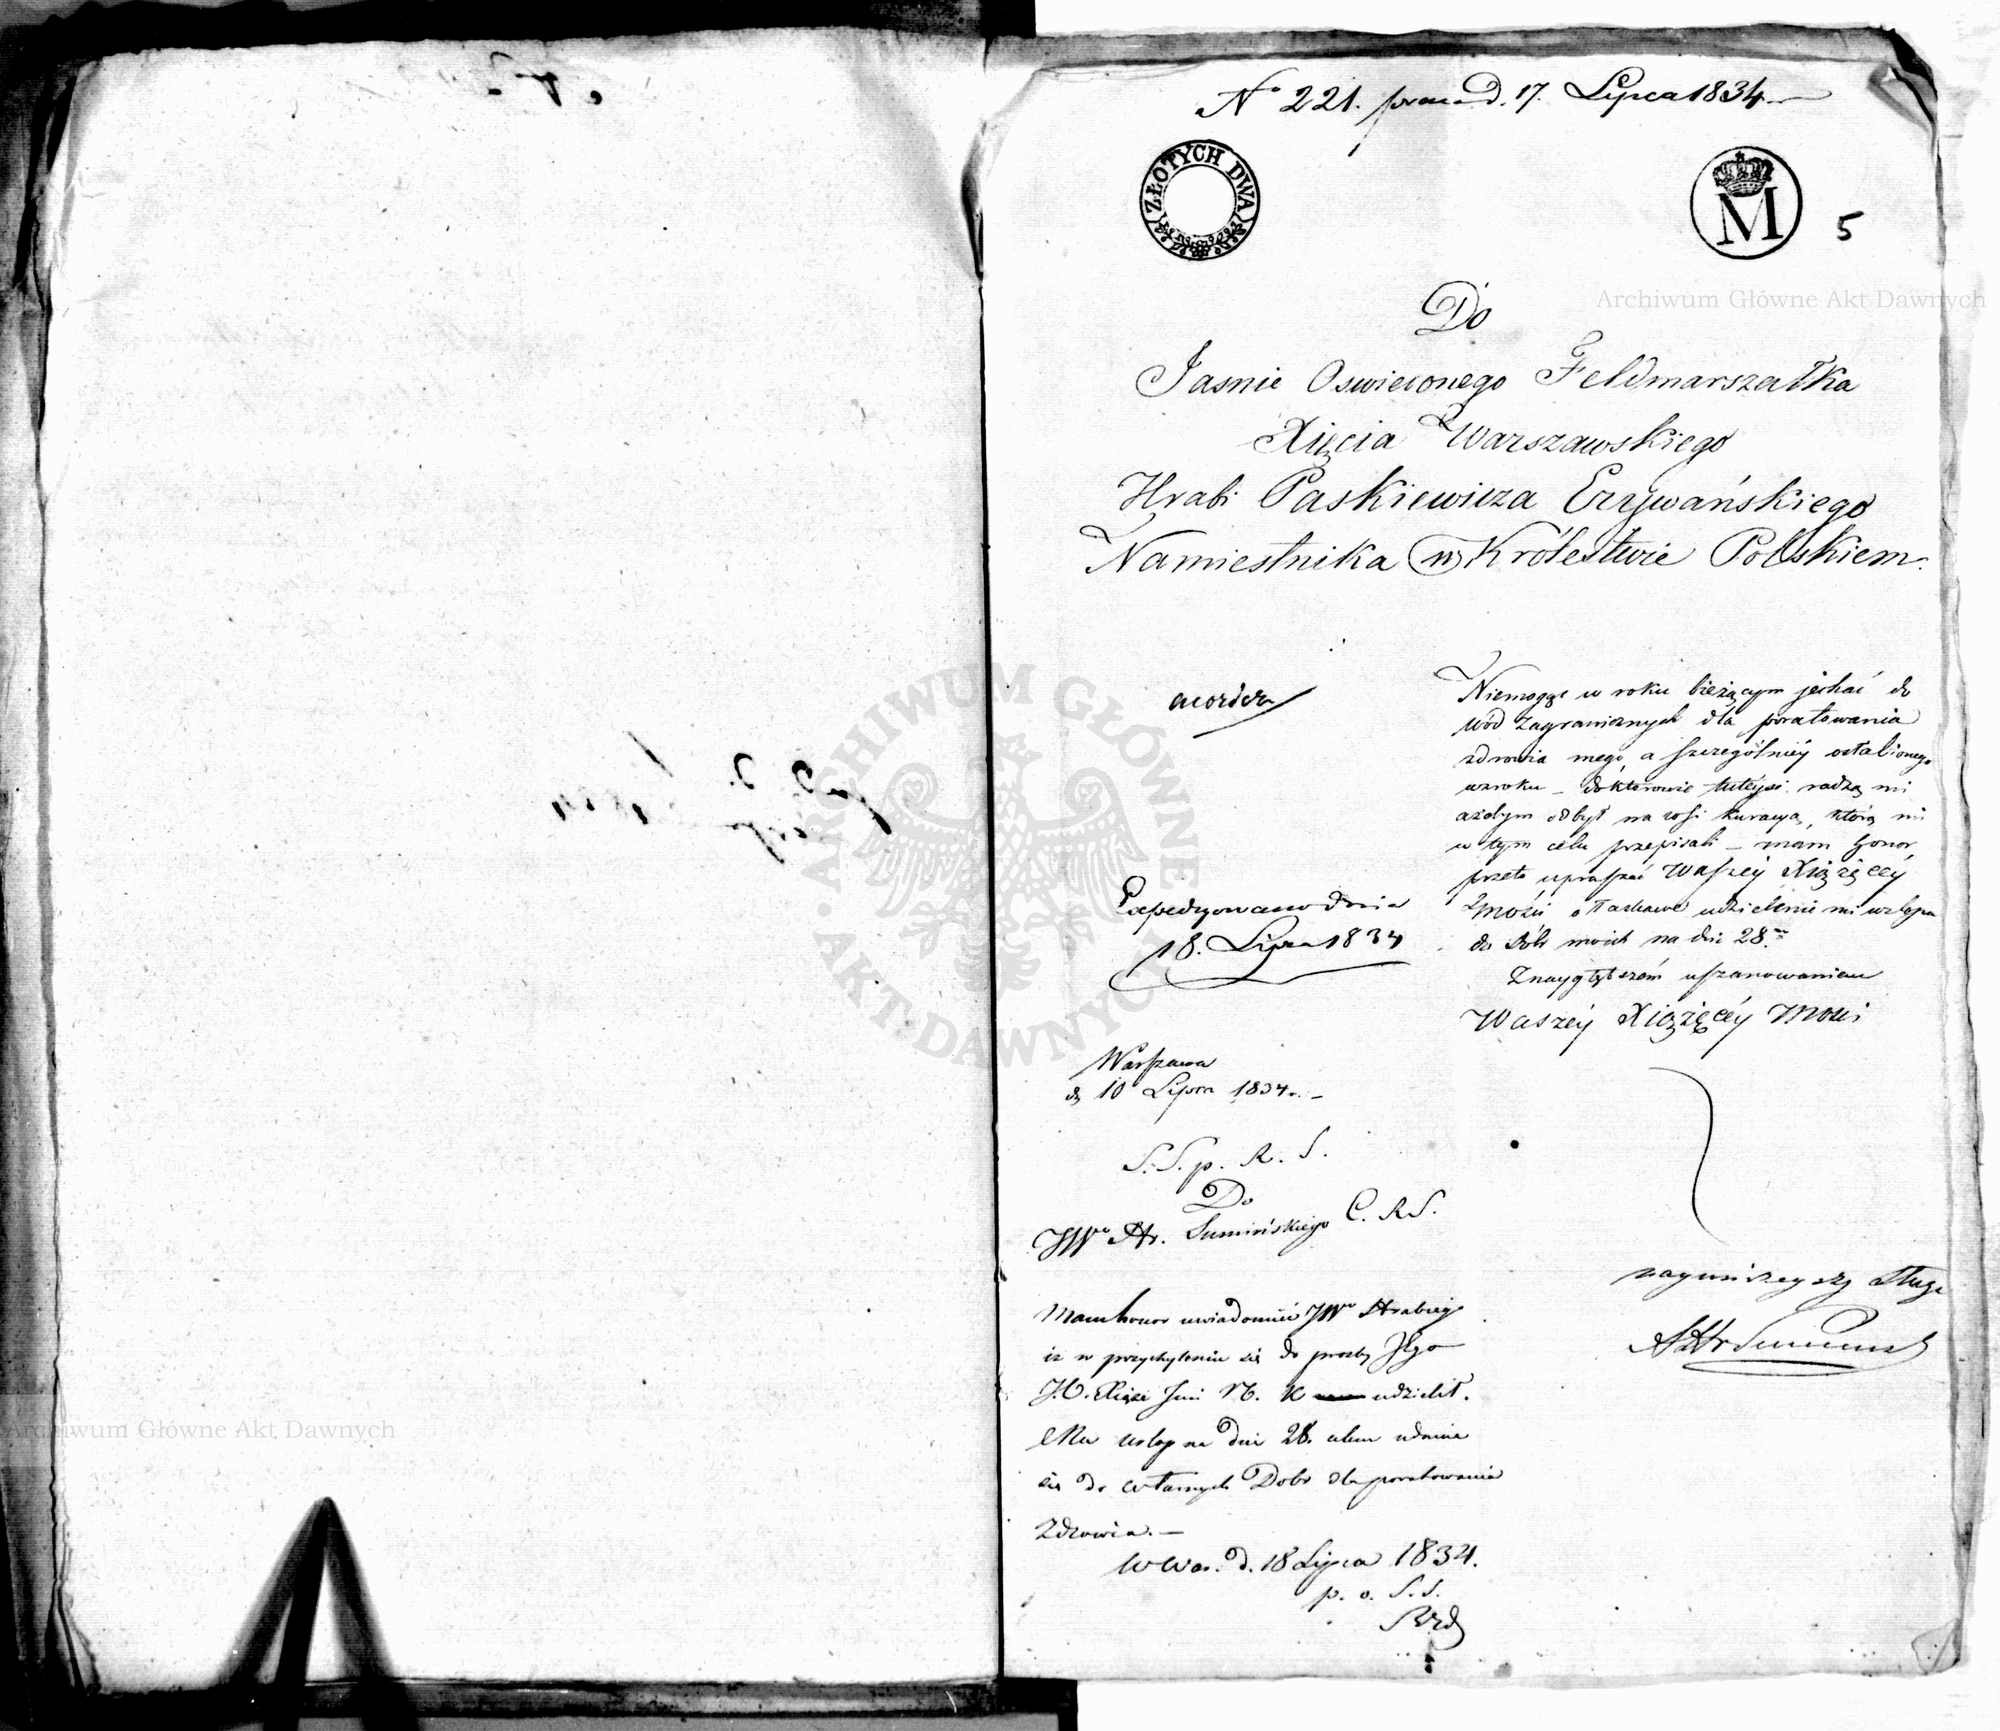 Nº 221. prae d. 17. Lipca 1834
ZŁOTYCH DWA
M
5
Do
Jasnie Oswieconego Feldmarszałka
Xięcia Warszawskiego
Hrabi Paskiewicza Erywańskiego
Namiestnika w Królestwie Polskiem.
Niemogąc w roku bieżącym jechać do
wód Zagranicznych dla poratowania
zdrowia mego, a szczególniéy osłabionego
wzroku – doktorowie tuteysi radzą mi
ażebym odbył na wsi kuracyą, którą mi
w tym celu przepisali – mam honor
przeto upraszać Waszéy Xiążęcéy
Mości o łaskawe udzielenie mi urlopu
do dóbr moich na dni 28.
Z naygłębszém uszanowaniem
Waszéy Xiążęcéy Mości
nayniższy sługa
Expedyowano dnia
18. Lipca 1834
Warszawa
d. 10 Lipca 1834 r. –
S. S. p. R. S.
Do
JWº Hr. Sumińskiego C. R. S.
Mam honor uwiadomić JWº Hrabiego
iż w przychyleniu się do prośby Jego
J.O. Xiąże Jmć N. K udzielił
Mu urlop na dni 28. celem udania
się do własnych Dobr dla poratowania
Zdrowia. –
W War. d. 18 Lipca 1834.
p. o. S. S.
Archiwum Główne Akt Dawnych
Archiwum Główne Akt Dawnych
ARCHIWUM GŁÓWNE
AKT DAWNYCH